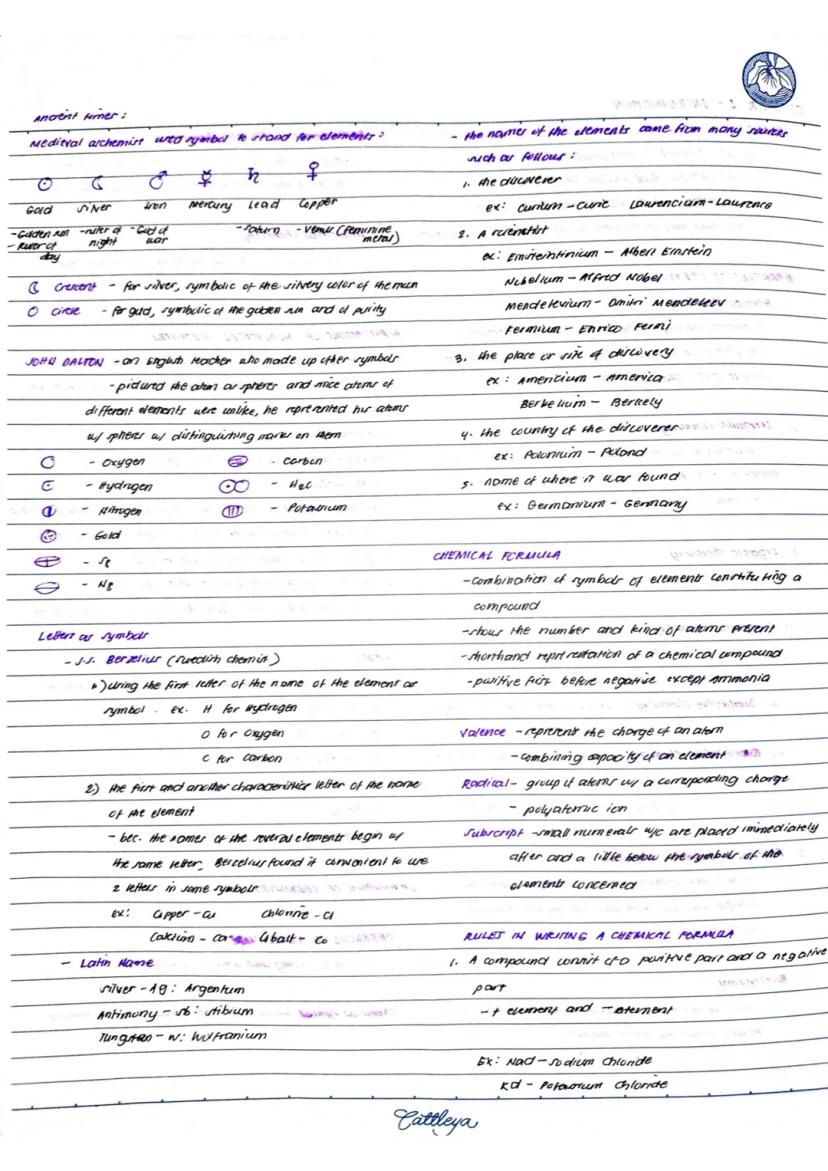 Ancient times:
Medieval alchemist used symbol to stand for elements:
☉ ☾ ♂ ☿ ♄ ♀
Gold Silver Iron Mercury Lead Copper
-Golden sun -ruler of -God of -Saturn -Venus (feminine
-Ruler of night war metal)
day
☾ Crescent - for silver, symbolic of the silvery color of the moon
○ Circle - for gold, symbolic of the golden sun and of purity
JOHN DALTON - an English teacher who made up other symbols
- pictured the atom as spheres and since atoms of
different elements were unlike, he represented his atoms
w/ spheres w/ distinguishing marks on them
- Oxygen - Carbon
- Hydrogen
- Nitrogen - Potassium
- Gold
Letters as symbols
- J.J. Berzelius (Swedish chemist)
using the first letter of the name of the element as
symbol. ex. H for Hydrogen
O for Oxygen
C for Carbon
2.) the first and another characteristics letter of the name
of the element
- bec. the names of the several elements begin w/
the same letter, Berzelius found it convenient to use
2 letters in some symbols
ex: Copper - Cu Chlorine - Cl
Calcium - Ca Cobalt - Co
- Latin Name
Silver - Ag: Argentum
Antimony - Sb: Stibium
Tungsten - W: Wolfranium
- the names of the elements came from many sources
such as follows:
1. the discoverer
ex: Curium - Curie Laurencium - Laurence
2. A scientist
ex: Einsteintinium - Albert Einstein
Nobelium - Alfred Nobel
Mendelevium - Dmitri Mendeleev
Fermium - Enrico Fermi
3. the place or site of discovery
ex: Americium - America
Berkelium - Berkely
4. the country of the discoverer
ex: Polonium - Poland
5. name of where it was found
ex: Germanium - Germany
CHEMICAL FORMULA
- combination of symbols of elements constituting a
compound
- shows the number and kind of atoms present
- shorthand representation of a chemical compound
- positive first before negative except ammonia
Valence - represents the charge of an atom
- combining capacity of an element
Radical - group of atoms w/ a corresponding charge
- polyatomic ion
Subscript - small numerals w/c are placed immediately
after and a little below the symbols of the
elements concerned
RULES IN WRITING A CHEMICAL FORMULA
1. A compound consist of a positive part and a negative
part
- + element and - element
Ex: NaCl - Sodium Chloride
KCl - Potassium Chloride
Cattleya